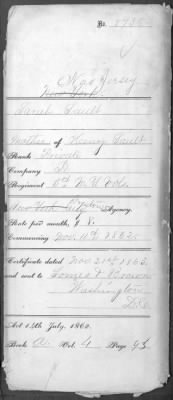 No.
New Jersey
New York.
Sarah Sault
Mother of Henry Sault
Rank Private
Company D.
Regiment 6th N. Y. Vols.
New York Agency.
Rate per month, $ 8.
Commencing Nov. 11th 1862.
Certificate dated Nov. 21st 1863.
and sent to James Brown
Washington
D.C.
Act 14th July, 1862.
Book A. Vol. 4 Page 95